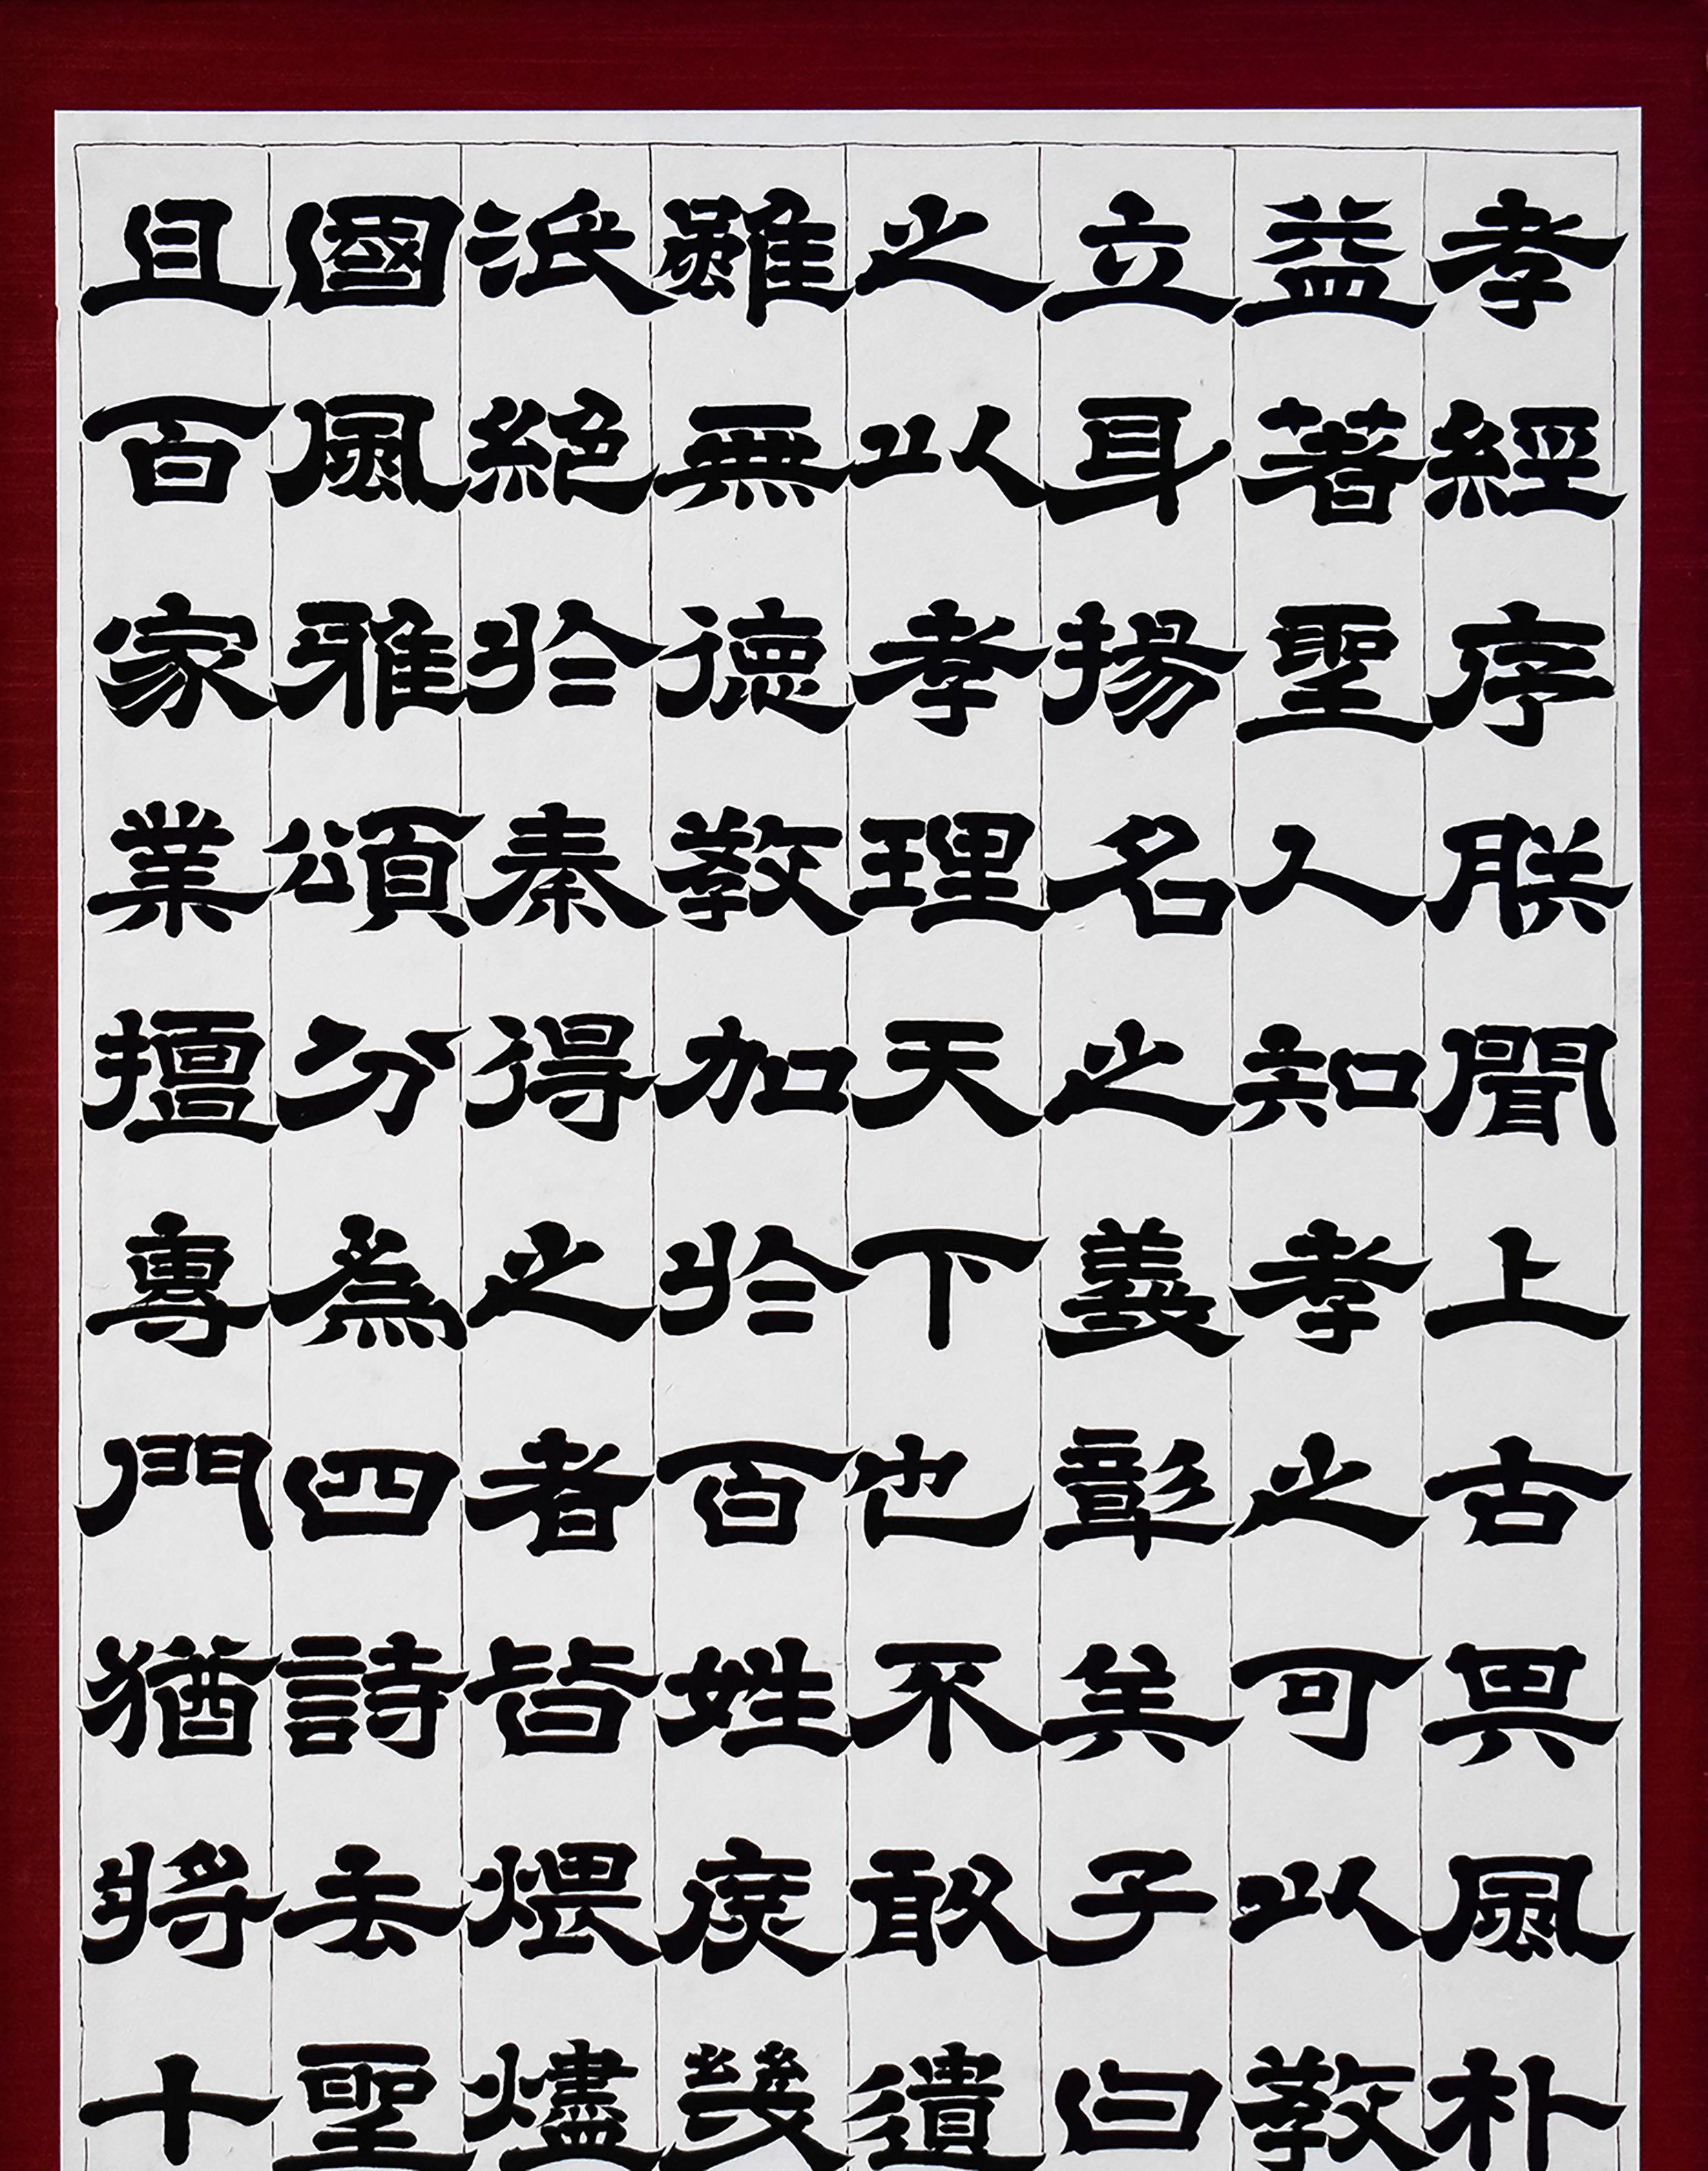 孝經序朕聞上古其風朴
益著聖人知孝之可以教
立身揚名之義彰矣子曰
之以孝理天下也不敢遺
雖無德教加於百姓庶幾
泯絕於秦得之者皆煨燼
國風雅頌分為四詩去聖
且百家業擅專門猶將十